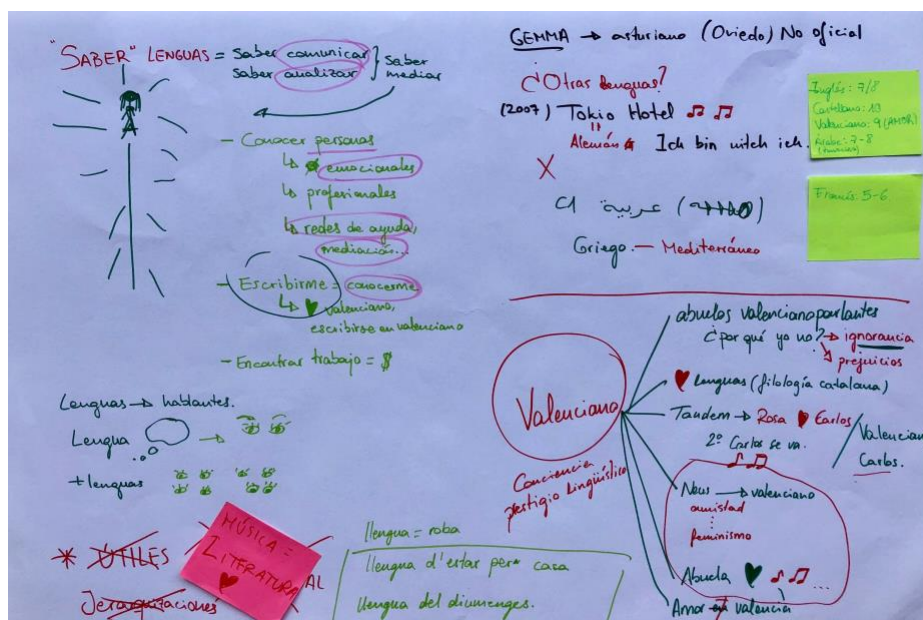 "SABER" LENGUAS = Saber comunicar
Saber analizar
Saber mediar
- Conocer personas
↳ emocionales
↳ profesionales
↳ redes de ayuda, mediación...
- Escribirme = conocerme
↳ ♥ valenciano,
escribirse en valenciano
- Encontrar trabajo = $
Lenguas → hablantes.
Lengua
+ lenguas
* ÚTILES
Jerarquizaciones
MÚSICA =
LITERATURA
♥
AL
llengua = roba
llengua d'estar per casa
llengua del diumenges.
GEMMA → asturiano (Oviedo) No oficial
¿Otras lenguas?
(2007) Tokio Hotel ♫ ♫
Alemán
Ich bin nitch ich.
X
C1 عربية
Griego - Mediterráneo
Inglés: 7/8
Castellano: 10
Valenciano: 9 (AMOR)
Árabe: 7-8
Francés: 5-6
Valenciano
Conciencia
prestigio lingüístico
abuelos valencianoparlantes
¿por qué yo no? → ignorancia
→ prejuicios
♥ lenguas (filología catalana)
Tandem → Rosa ♥ Carlos
2º Carlos se va.
Valencian
Carlos.
♫ ♫
Neus → valenciano
amistad
feminismo
Abuela ♥ ♪ ♫ ...
Amor → valencia